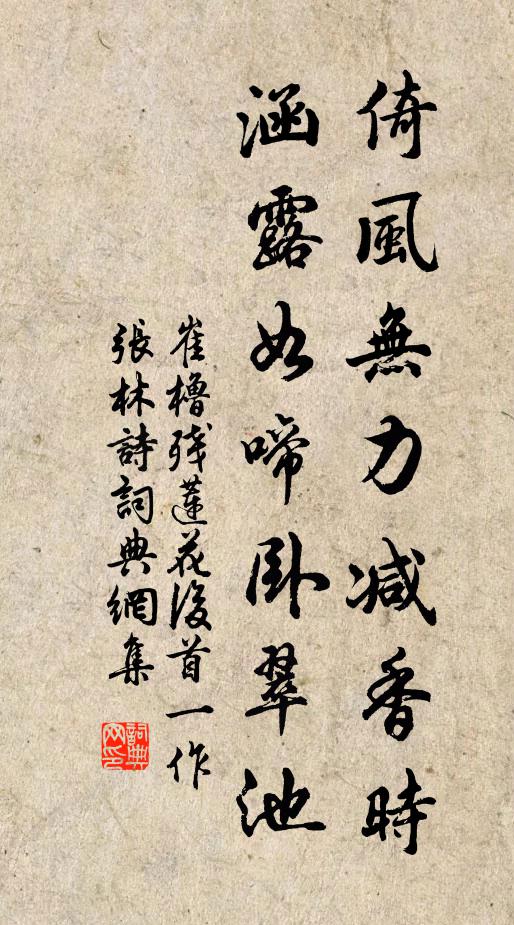 倚風無力减香時
涵露如啼卧翠池
崔櫓残蓮花後首一作
張林詩詞典網集
詞典
网印